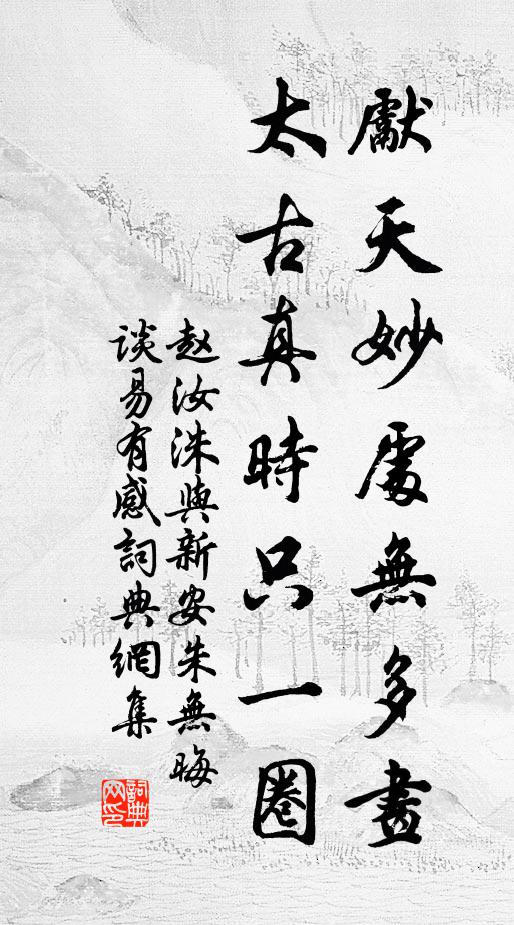 獻天妙處無多畫
太古真時只一圈
赵汝洙與新安朱無晦
谈易有感詞典網集
詞典
网印